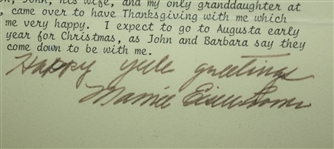 John, his wife, and my only granddaughter at
, came over to have Thanksgiving with me which
me very happy. I expect to go to Augusta early
year for Christmas, as John and Barbara say they
come down to be with me.
Happy yule greetings
Mamie Eisenhower